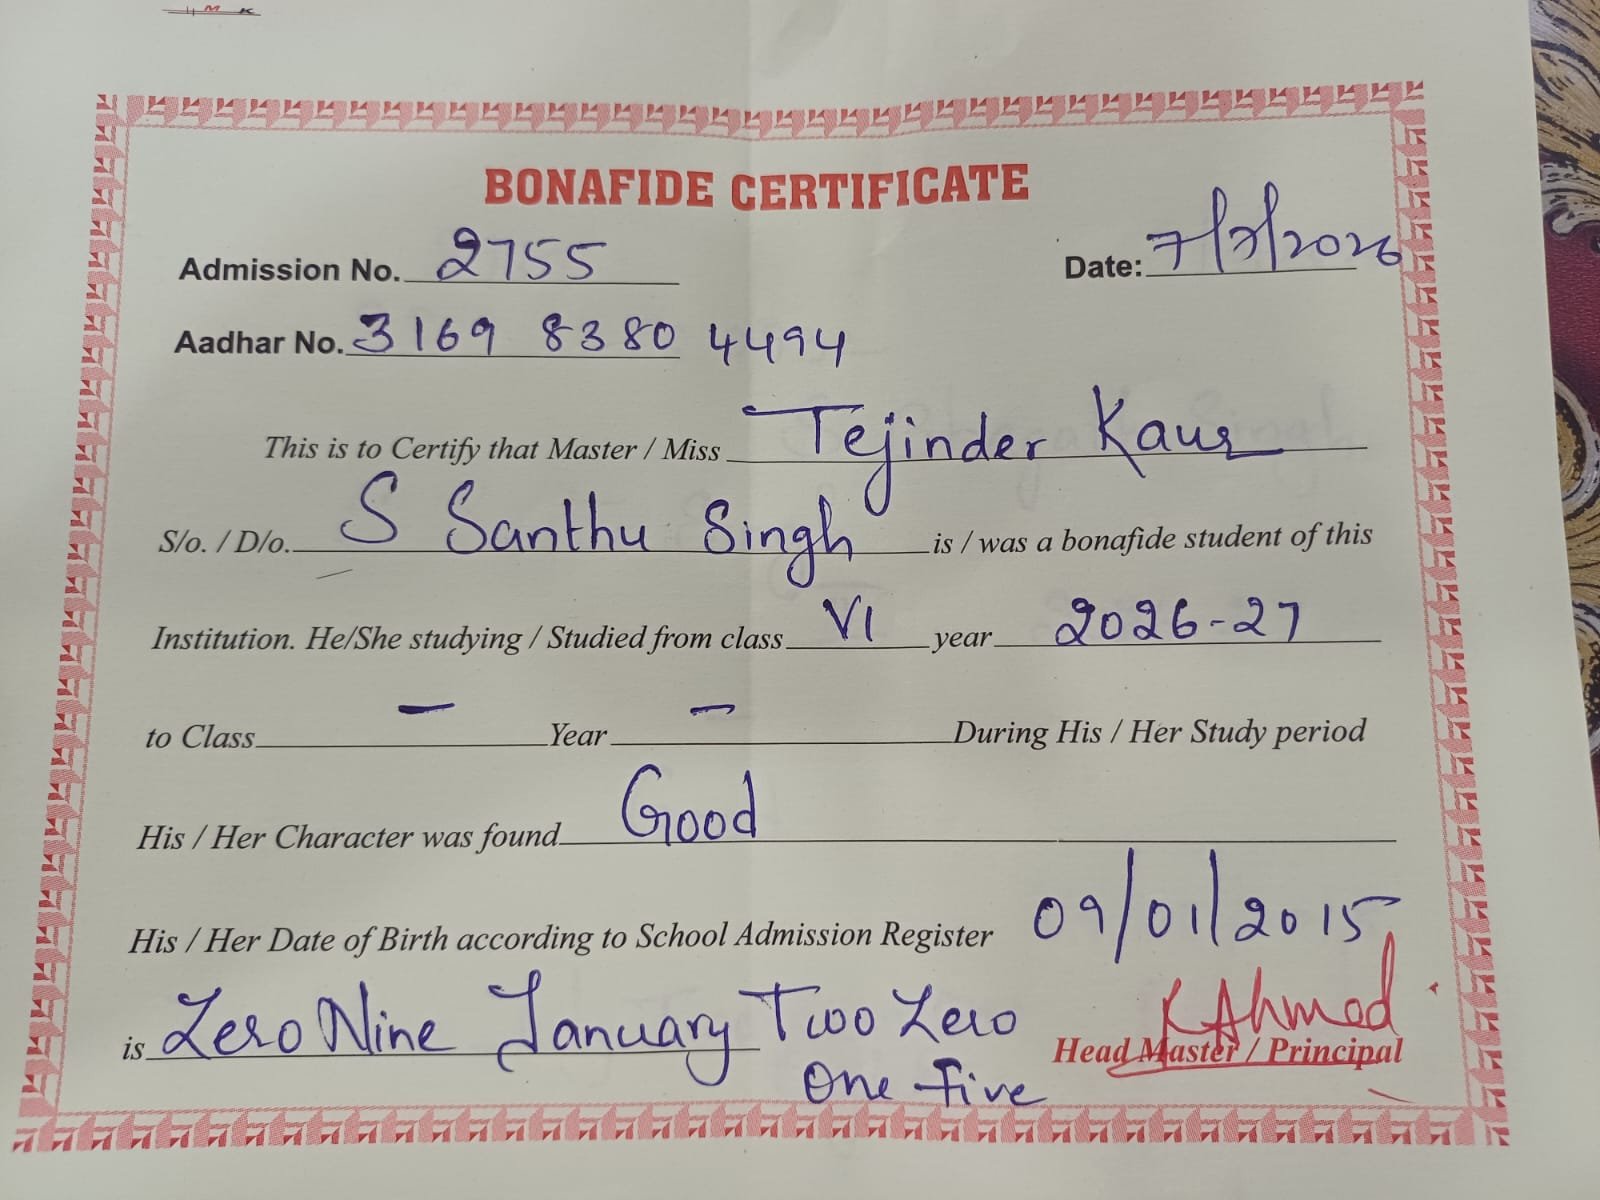 BONAFIDE CERTIFICATE
Admission No. 2755 Date: 7/7/2026
Aadhar No. 3169 8380 4494
This is to Certify that Master / Miss Tejinder Kaur
S/o. / D/o. S Santhu Singh is / was a bonafide student of this
Institution. He/She studying / Studied from class VI year 2026-27
to Class - Year - During His / Her Study period
His / Her Character was found Good
His / Her Date of Birth according to School Admission Register 09/01/2015
is Zero Nine January Two Zero
One Five
K Ahmed
Head Master / Principal